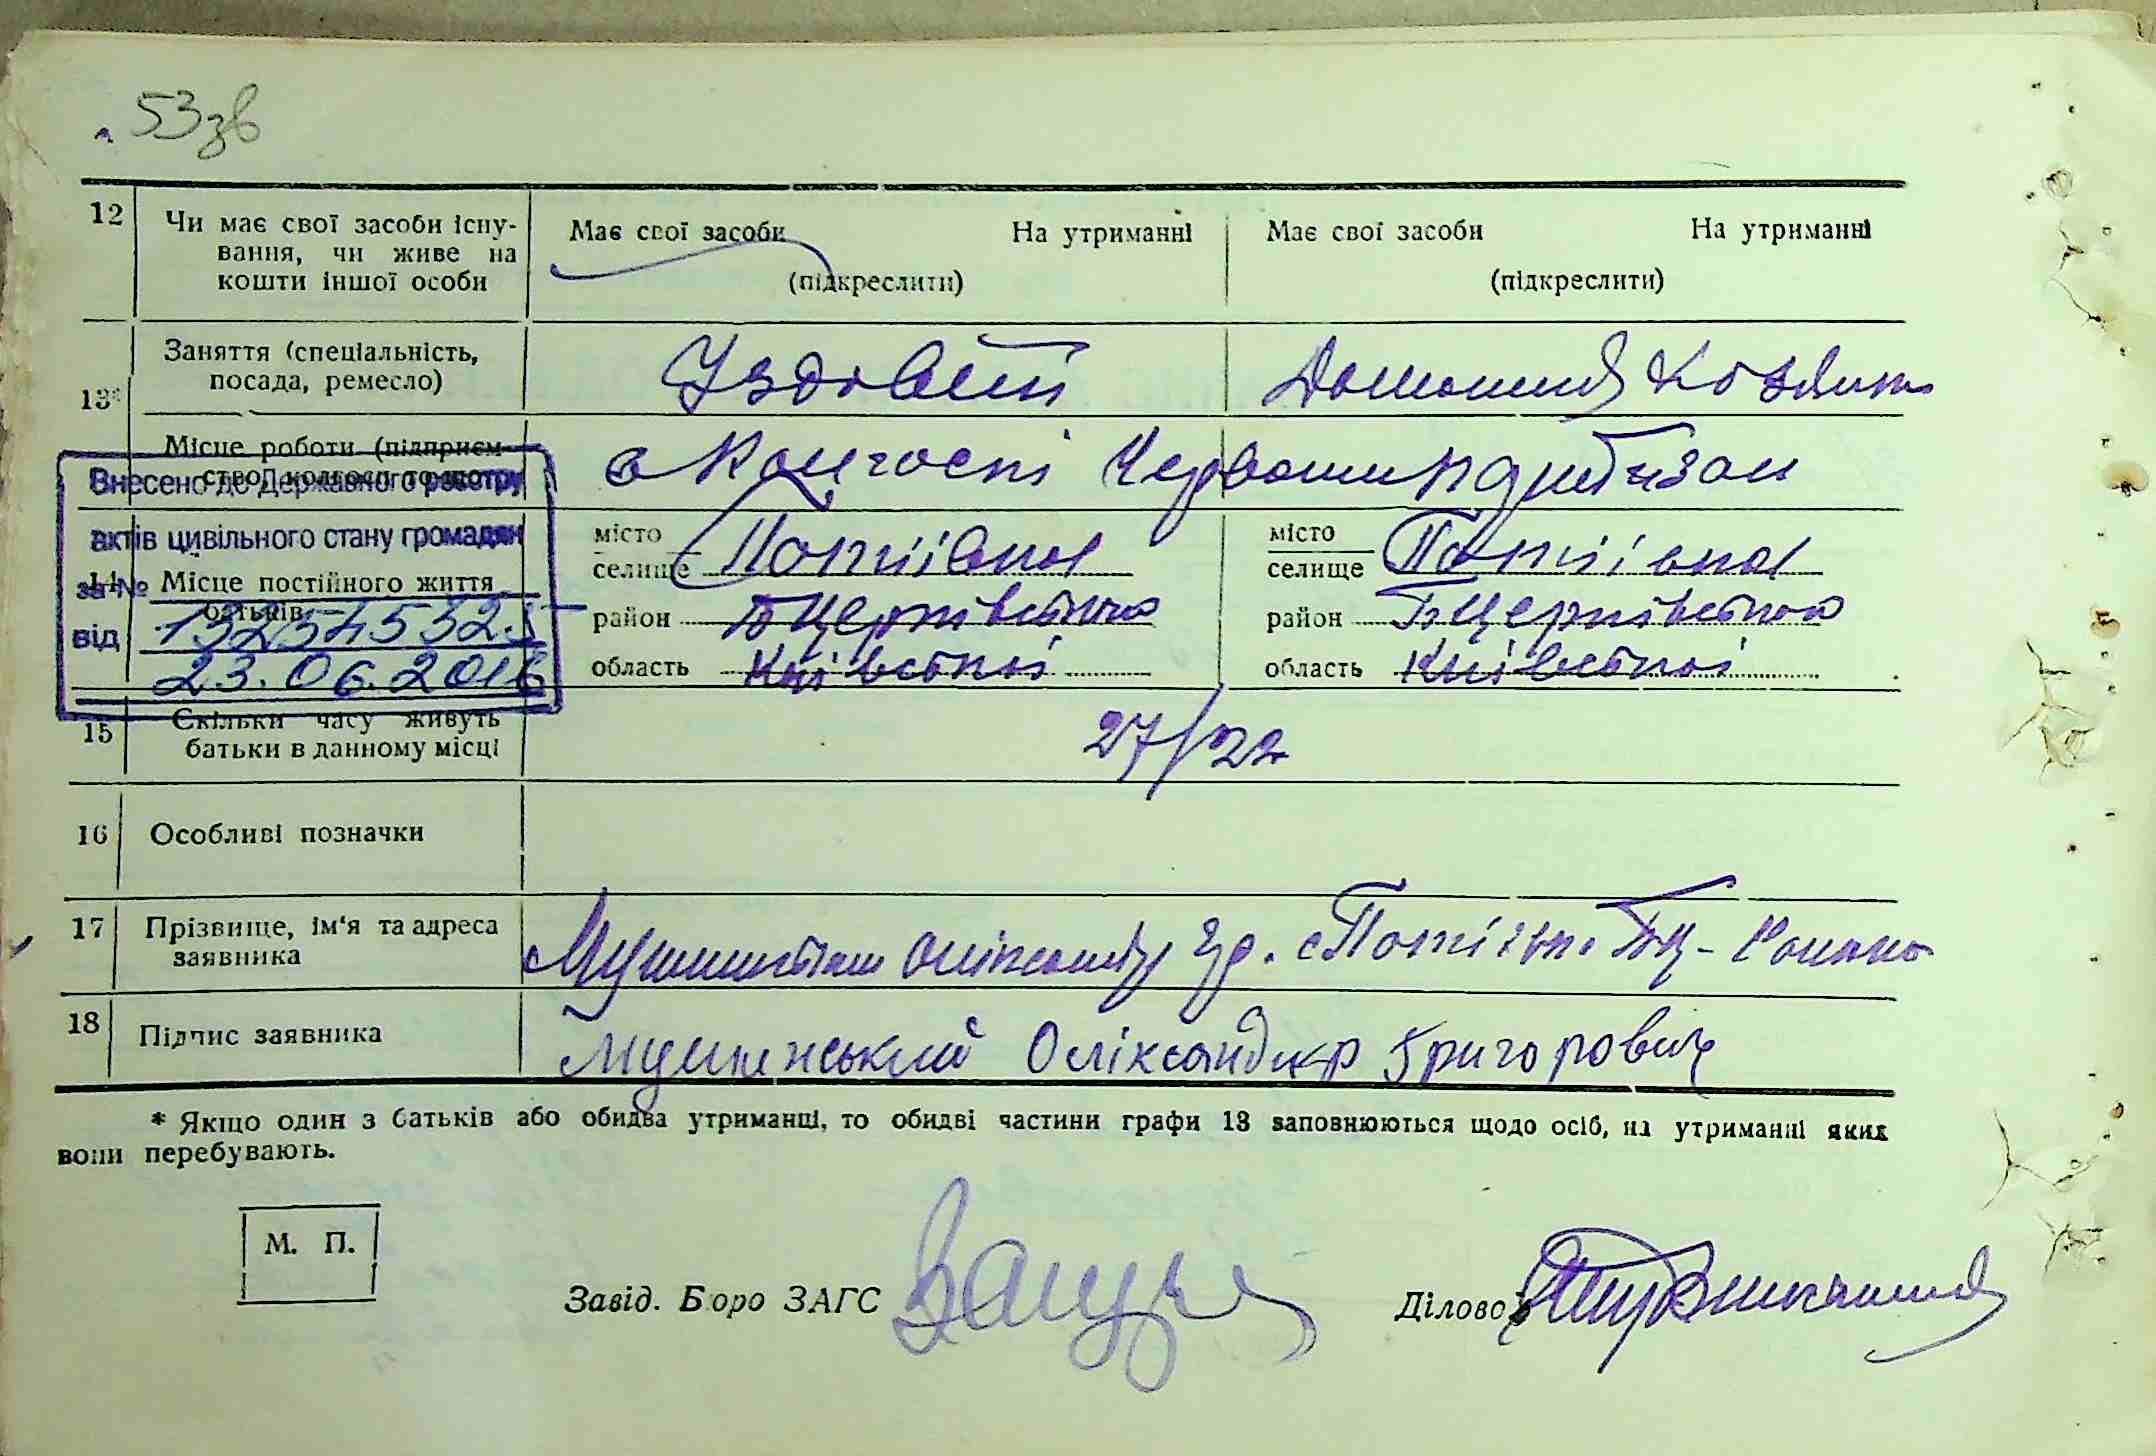 53зв
12 Чи має свої засоби існу-
вання, чи живе на
кошти іншої особи
Має свої засоби На утриманні
(підкреслити)
Має свої засоби На утриманні
(підкреслити)
13* Заняття (спеціальність,
посада, ремесло)
Їздовий
Домашня
Місце роботи (підприєм-
ство, колгосп то що)
в колгоспі Червоний партизан
Внесено до Державного реєстру
актів цивільного стану громадян
за №
від 23.06.2016
14 Місце постійного життя
батьків
місто
селище Потіївка
район БЦерківського
область Київської
місто
селище Потіївка
район БЦерківського
область Київської
15 Скільки часу живуть
батьки в данному місці
27/22
16 Особливі позначки
17 Прізвище, ім'я та адреса
заявника
18 Підпис заявника
Оліксандир Григорович
* Якщо один з батьків або обидва утриманці, то обидві частини графи 13 заповнюються щодо осіб, на утриманні яких
вони перебувають.
М. П.
Завід. Боро ЗАГС
Діловод